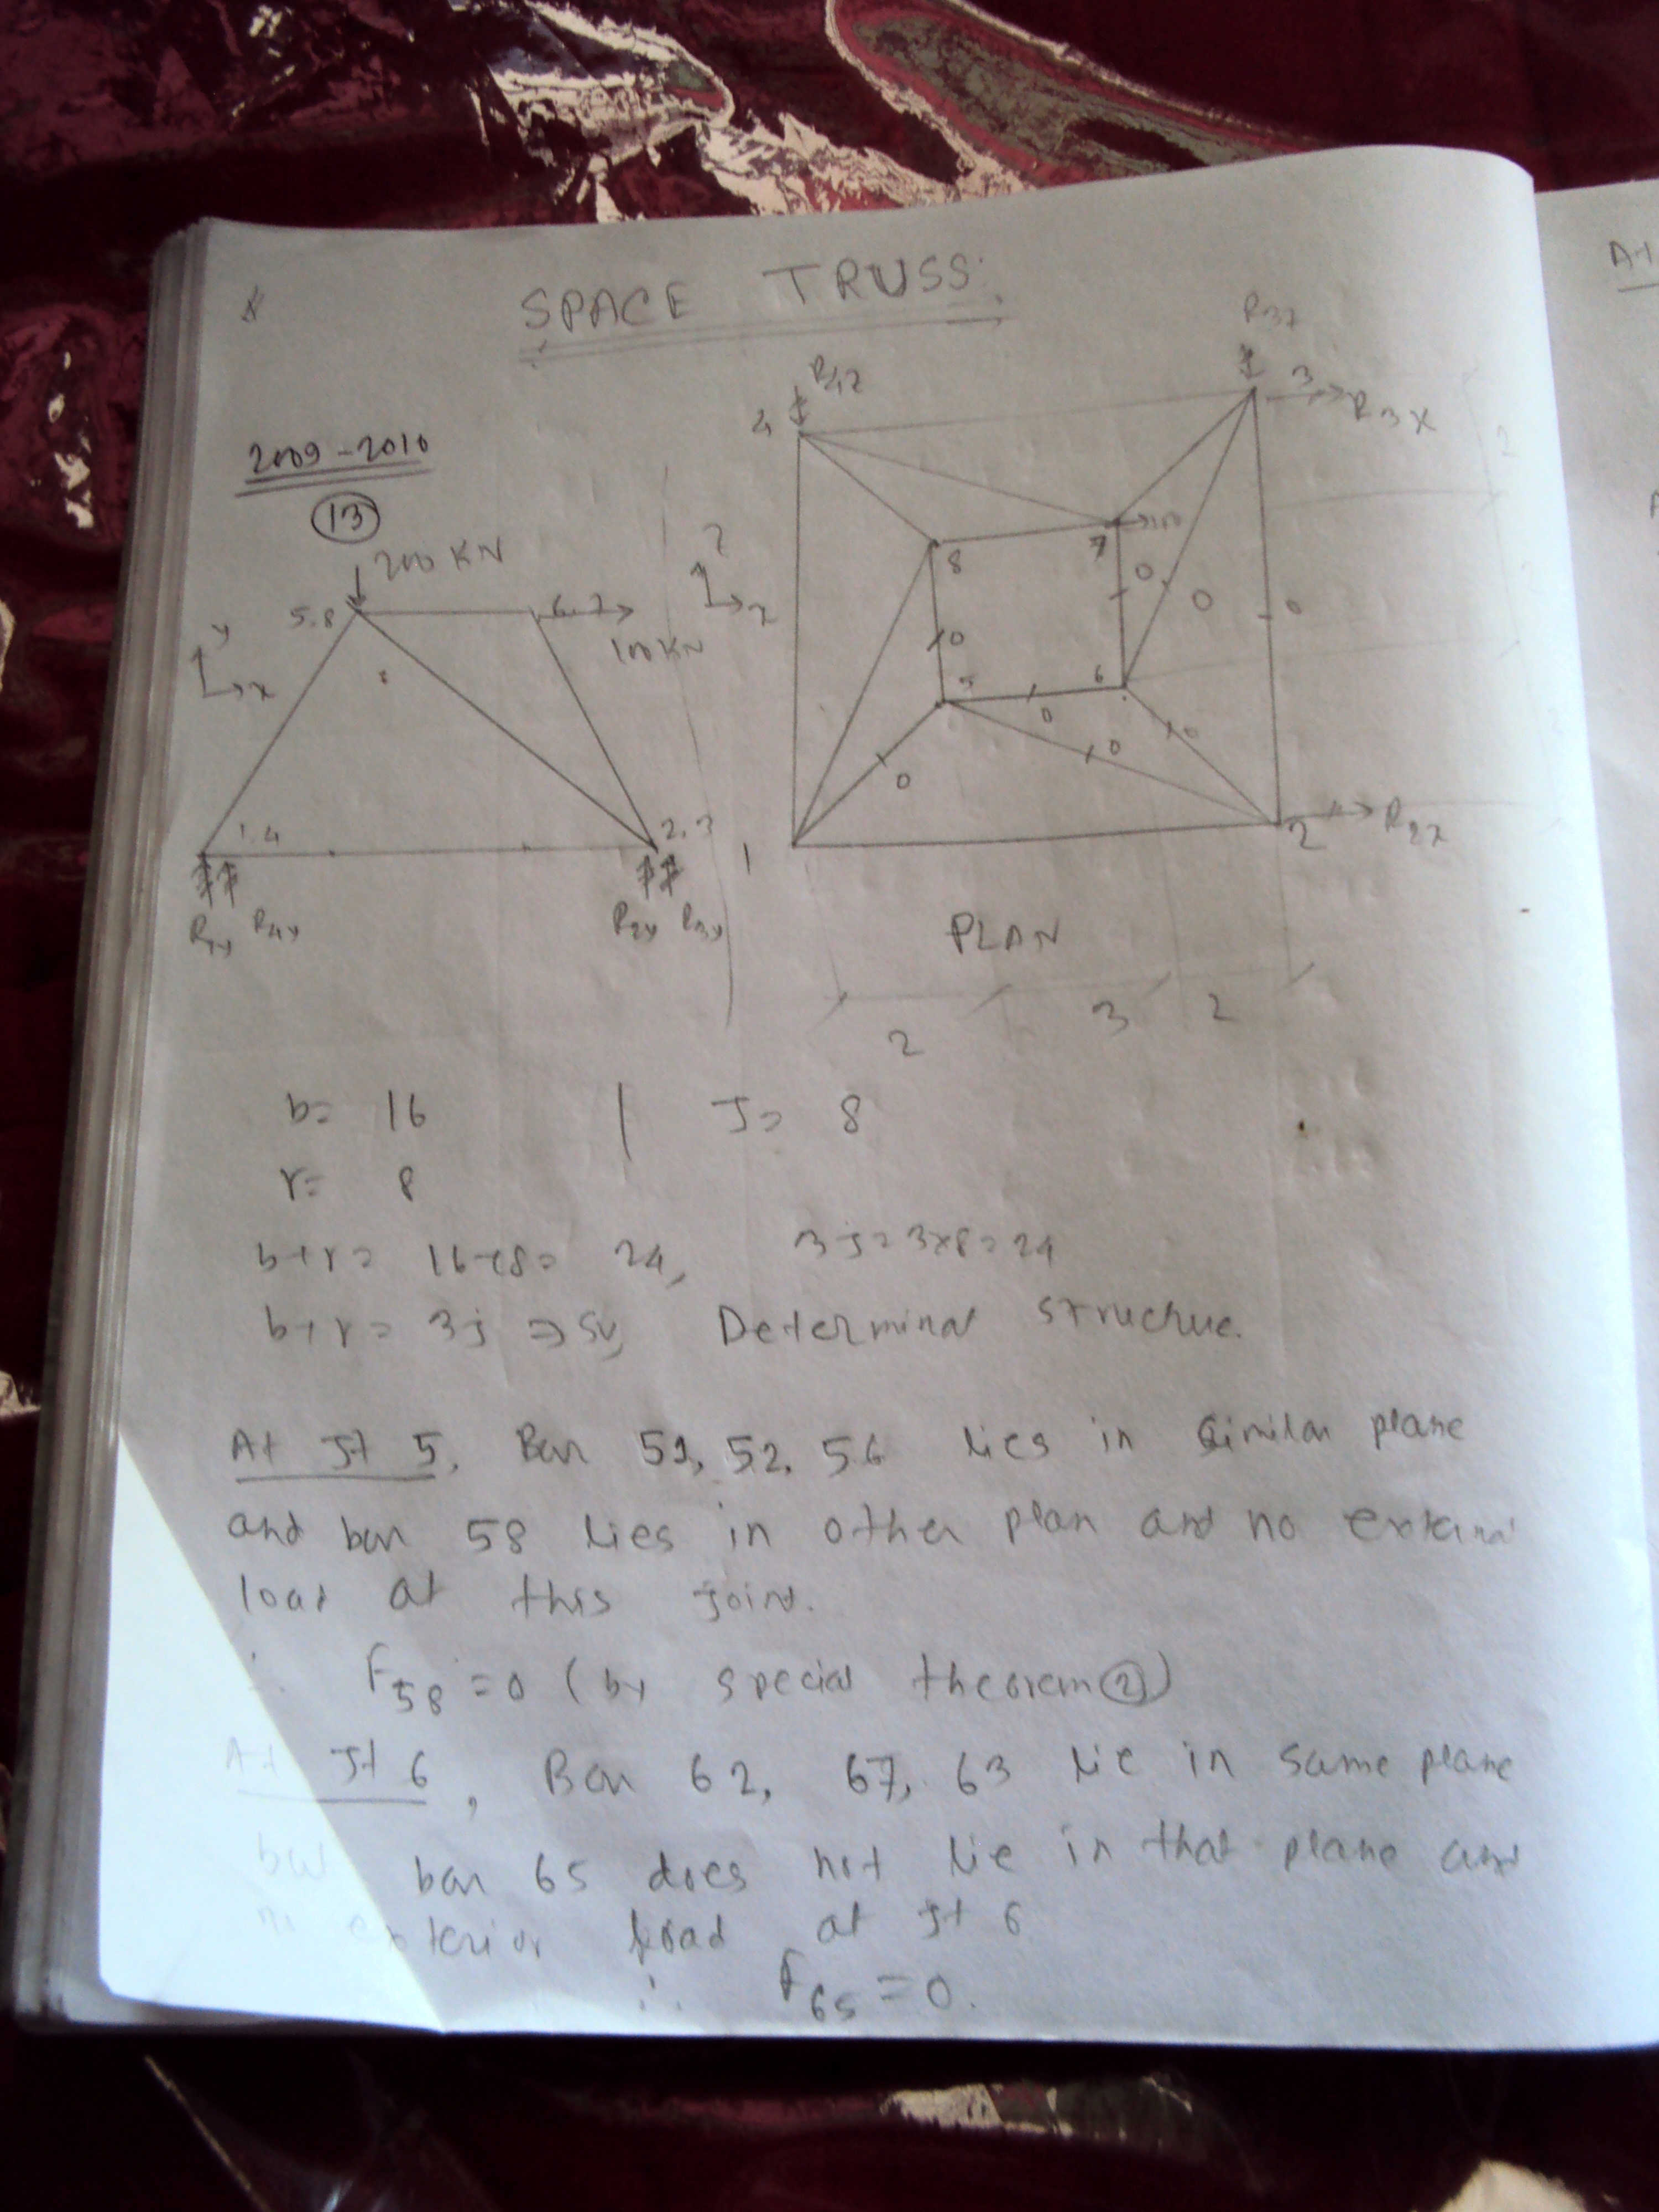 SPACE TRUSS
2009-2010
13
200 KN
5.8
6.7
100 KN
y
x
1.4
2.3
R1y R4y
R2y R3y
R4z
4
R3z
3
R3x
8
7
100
0
0
0
0
5
6
0
0
0
0
1
2
R2x
PLAN
2
3
2
b= 16 J= 8
r= 8
b+r= 16+8= 24, 3j=3x8=24
b+r= 3j => So, Determinat structure.
At Jt 5, Bar 51, 52, 56 lies in similar plane
and bar 58 lies in other plan and no external
load at this joint.
∴ F58=0 (by special theorem②)
At Jt 6, Bar 62, 67, 63 lie in same plane
but bar 65 does not lie in that plane and
no exterior load at Jt 6
∴ F65=0.
At